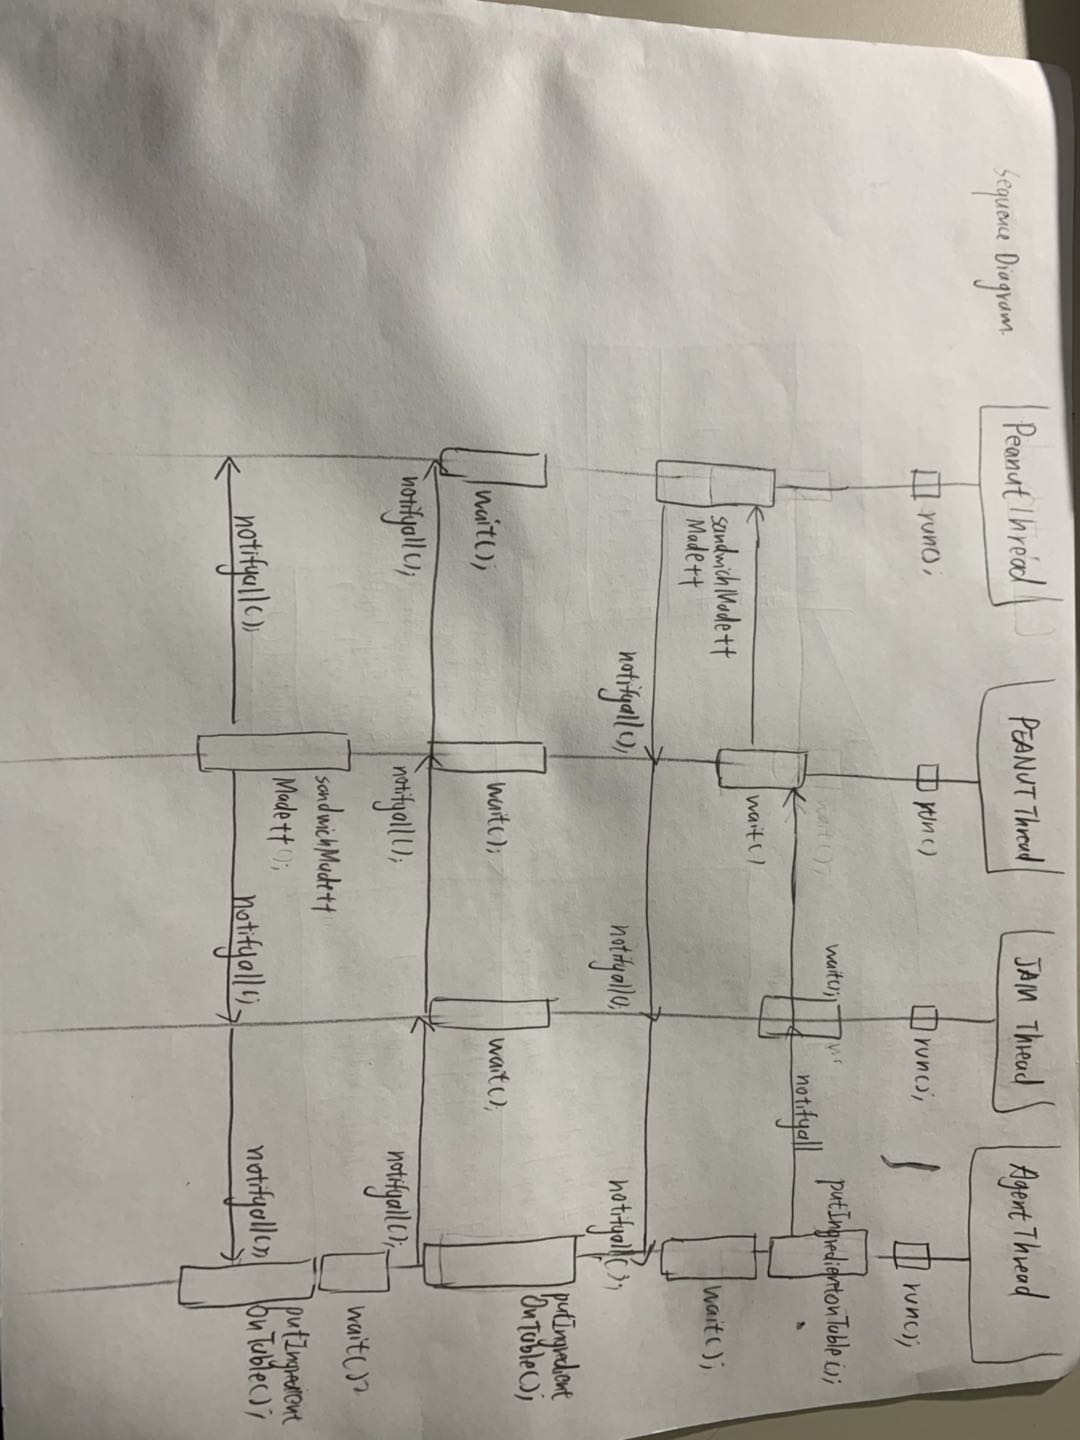 Sequence Diagram.
Peanut Thread
PEANUT Thread
JAM Thread
Agent Thread
run();
run()
run();
run();
wait();
wait();
putIngredientonTable();
notifyall
wait()
sandwichMade++
Made++
wait();
notifyall();
notifyall();
notifyall();
putIngredient
OnTable();
wait();
wait();
wait();
notifyall();
notifyall();
notifyall();
wait()
sandwichMade++
Made++();
putIngredient
OnTable();
notifyall();
notifyall();
notifyall();